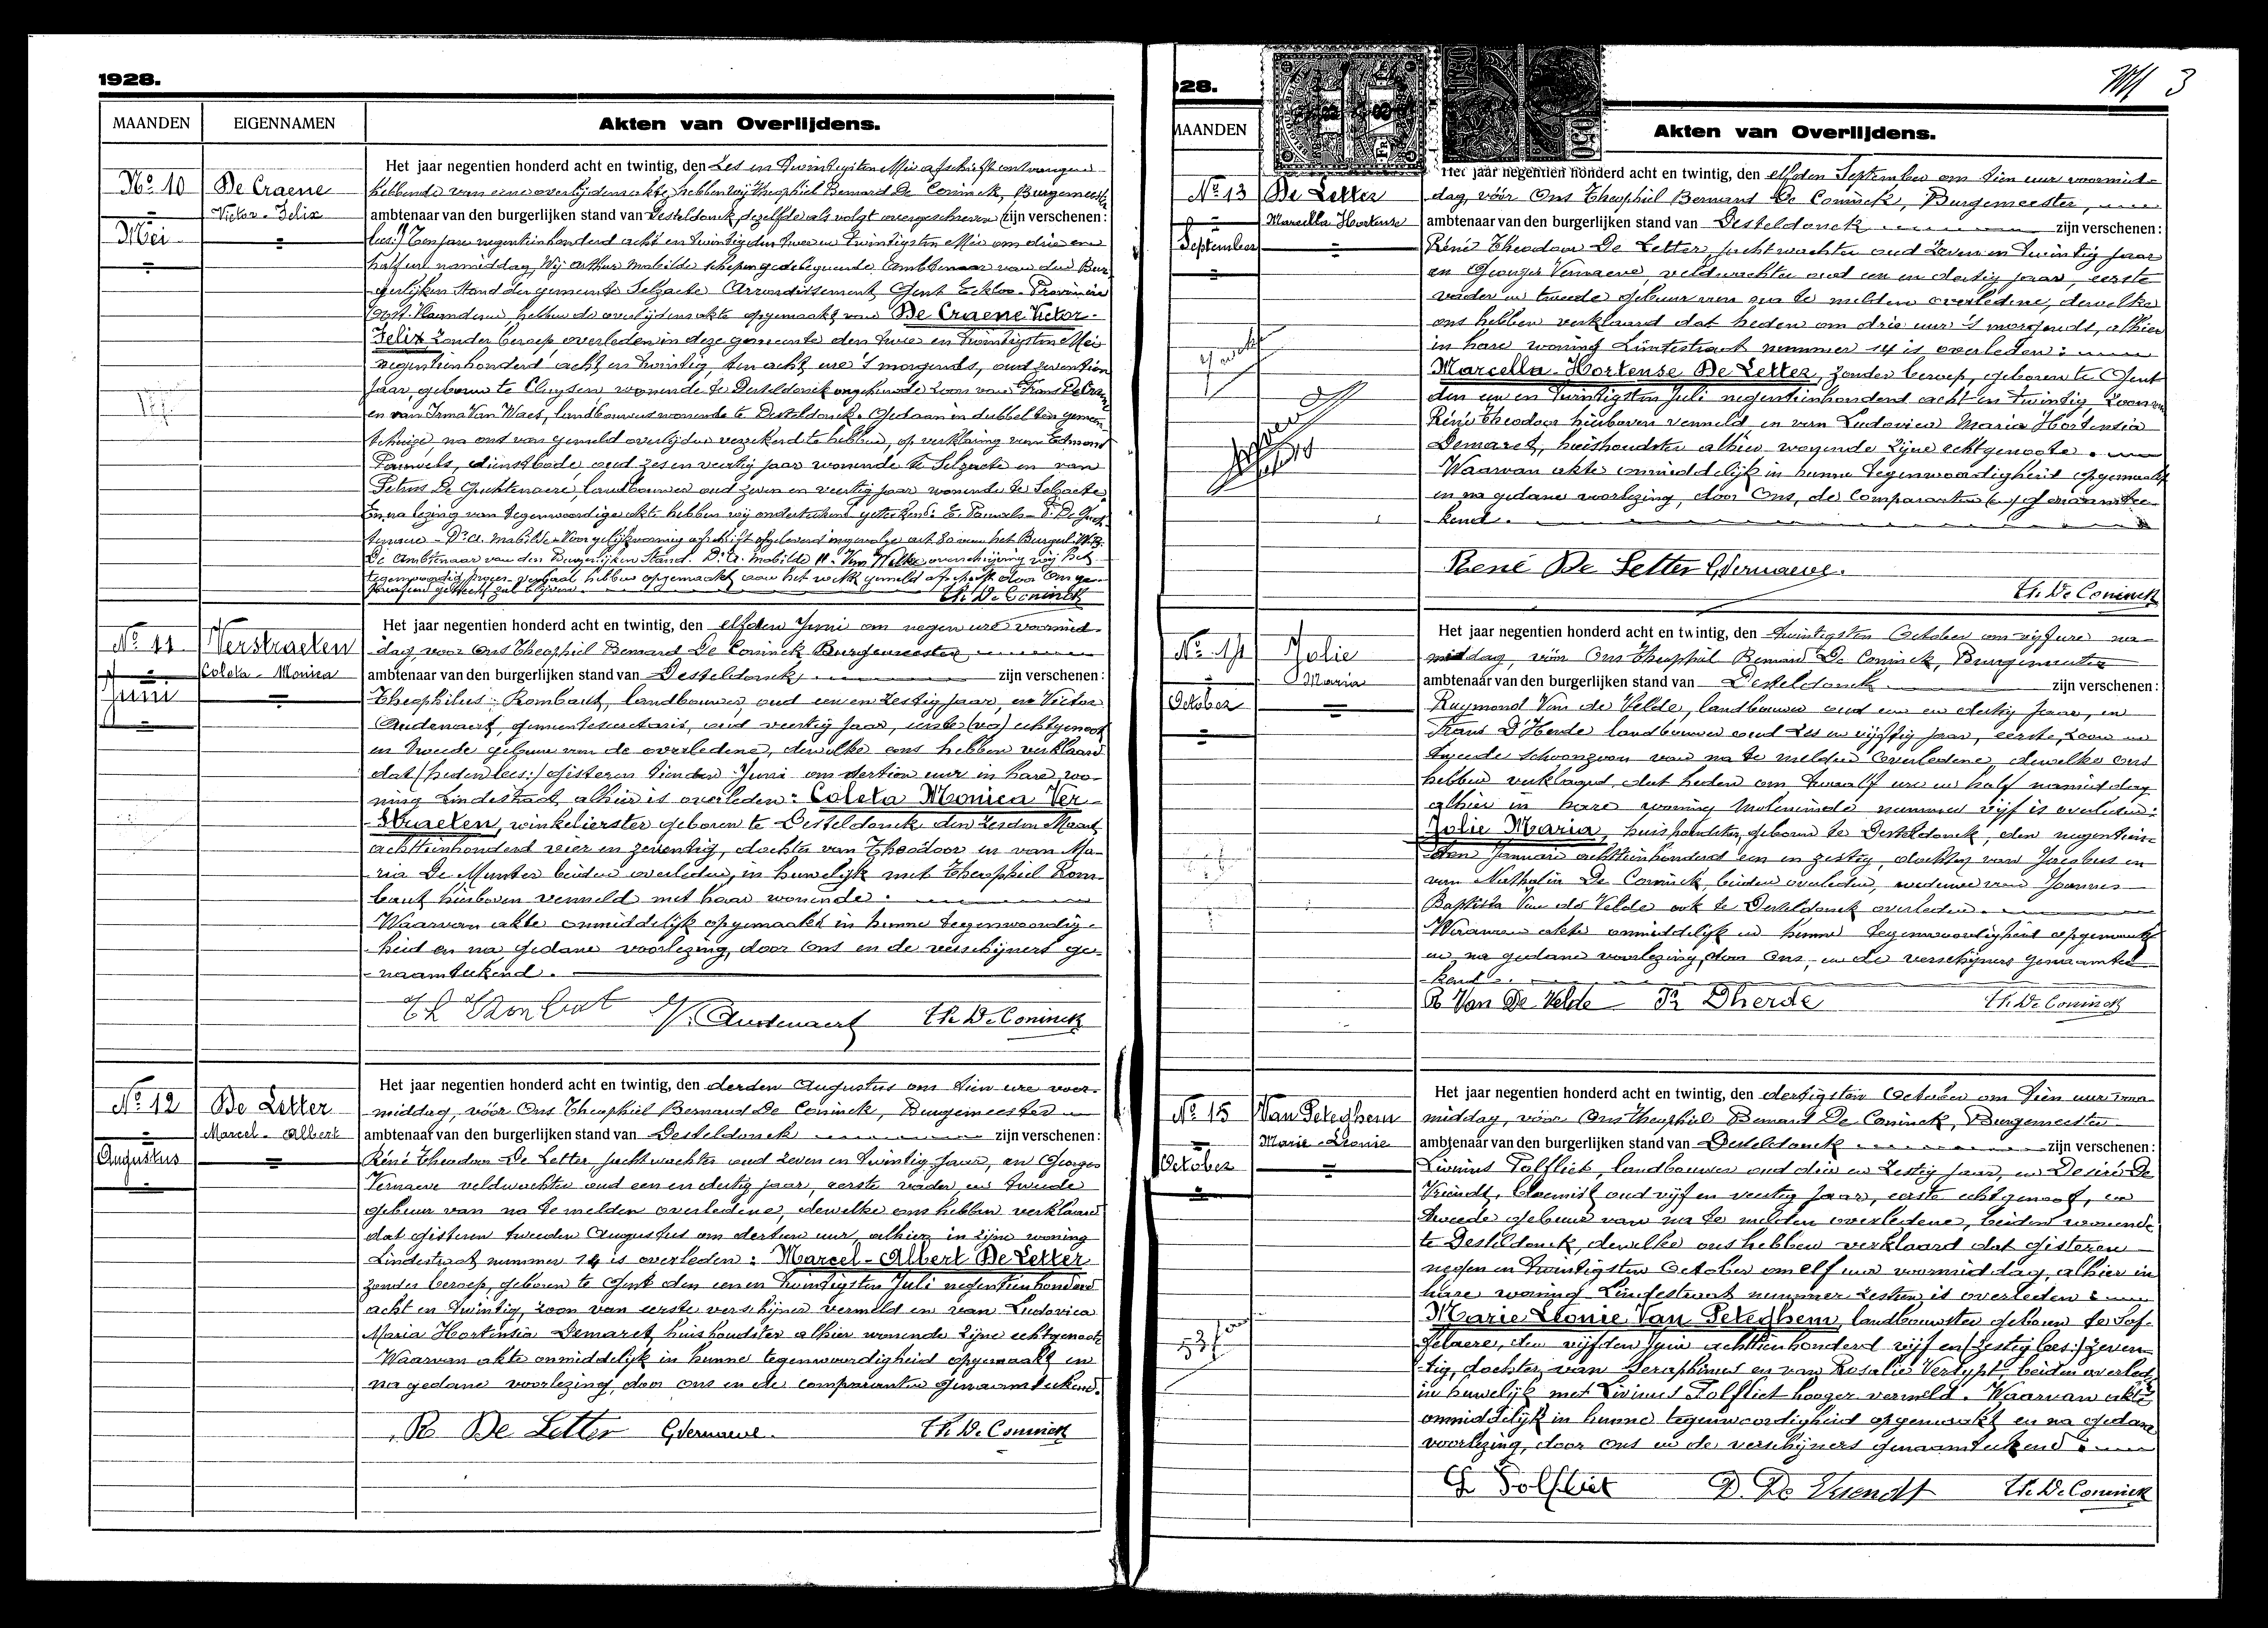 1928.
MAANDEN EIGENNAMEN Akten van Overlijdens.
No 10 De Craene
Victor-Felix
Mei
Het jaar negentien honderd acht en twintig, den Zes en Twintigsten Mei afschrift ontvangen
hebbende van eene overlijdensakte, hebben wij Theophiel Bernard De Coninck, Burgemeester
ambtenaar van den burgerlijken stand van Desteldonck dezelfde als volgt overgeschreven (zijn verschenen:
lees:) Ten jare negentienhonderd acht en twintig den twee en twintigsten Mei om drie en
half ure namiddag, Wij Arthur Mabilde schepen gedelegeerde Ambtenaar van den Bur-
gerlijken Stand der gemeente Selzaete Arrondissement Gent Eekloo Provincie
Oost-Vlaanderen hebben de overlijdensakte opgemaakt van De Craene Victor-
Felix zonder beroep overleden in deze gemeente den twee en twintigsten Mei
negentienhonderd acht en twintig, ten acht ure 's morgends, oud zeventien
jaar, geboren te Cluysen wonende te Desteldonck ongehuwde zoon van Frans De Craene
en van Irma Van Waes, landbouwers wonende te Desteldonck. Gedaan in dubbel ten gemeen-
tehuize, na ons van gemeld overlijden verzekerd te hebben, op verklaring van Edmond
Pauwels, dienstbode, oud zes en veertig jaar wonende te Selzaete en van
Petrus De Guchtenaere, landbouwer oud zeven en veertig jaar wonende te Selzaete
En na lezing van tegenwoordige akte hebben wij ondertekend geteekend: E. Pauwels - P. De Guch-
tenaere - Dr A. Mabilde - Voor gelijkvormig afschrift afgeleverd ingevolge art. 80 van het Burgerl. W.B.
De Ambtenaar van den Burgerlijken Stand. Dr A. Mabilde
tegenwoordig proces-verbaal hebben opgemaakt aan het welk gemeld afschrift door Ons ge-
gehecht zal blijven.
Th. De Coninck
No 11 Verstraeten
Coleta-Monica
Juni
Het jaar negentien honderd acht en twintig, den elfden Juni om negen ure voormid-
dag, voor Ons Theophiel Bernard De Coninck, Burgemeester
ambtenaar van den burgerlijken stand van Desteldonck zijn verschenen:
Theophilus Rombaut, landbouwer, oud een en zestig jaar, en Victor
Oudenaert, gemeentesecretaris, oud veertig jaar, eerste (va) echtgenoot
en tweede gebuur van de overledene, dewelke ons hebben verklaard
dat (heden lees:) gisteren tienden Juni om dertien uur in hare wo-
ning Lindestraat, alhier is overleden: Coleta Monica Ver-
straeten, winkelierster geboren te Desteldonck den zesden Maart
achttienhonderd vier en zeventig, dochter van Theodoor en van Ma-
ria De Munter beiden overleden, in huwelijk met Theophiel Rom-
baut hierboven vermeld met haar wonende.
Waarvan akte onmiddelijk opgemaakt in hunne tegenwoordig-
heid en na gedane voorlezing, door Ons en de verschijners ge-
naamteekend.
Th Rombaut V. Oudenaert Th. De Coninck
No 12 De Letter
Marcel-Albert
Augustus
Het jaar negentien honderd acht en twintig, den derden Augustus om tien ure voor-
middag, vóór Ons Theophiel Bernard De Coninck, Burgemeester
ambtenaar van den burgerlijken stand van Desteldonck zijn verschenen:
Réné Theodoor De Letter jachtwachter oud zeven en twintig jaar, en Georges
Vernaeve veldwachter oud een en dertig jaar, eerste vader en tweede
gebuur van na te melden overledene, dewelke ons hebben verklaard
dat gisteren tweeden Augustus om dertien uur, alhier in zijne woning
Lindestraat nummer 14 is overleden: Marcel-Albert De Letter
zonder beroep, geboren te Gent den eenen Twintigsten Juli negentienhonderd
acht en twintig, zoon van eerste verschijner vermeld en van Ludovica
Maria Hortensia Demaret, huishoudster alhier wonende zijne echtgenoote
Waarvan akte onmiddelijk in hunne tegenwoordigheid opgemaakt en
na gedane voorlezing, door ons en de comparanten genaamteekend.
R De Letter G. Vernaeve. Th. De Coninck
28. 3
MAANDEN Akten van Overlijdens.
No 13 De Letter
Marcella Hortense
September
Het jaar negentien honderd acht en twintig, den elfden September om tien uur voormid-
dag, vóór Ons Theophiel Bernard De Coninck, Burgemeester,
ambtenaar van den burgerlijken stand van Desteldonck zijn verschenen:
Réné Theodoor De Letter jachtwachter oud zeven en twintig jaar
en Georges Vernaeve, veldwachter oud een en dertig jaar, eerste
vader en tweede gebuur van na te melden overledene, dewelke
ons hebben verklaard dat heden om drie uur 's morgends, alhier
in hare woning Lindestraat nummer 14 is overleden:
Marcella-Hortense De Letter, zonder beroep, geboren te Gent
den een en twintigsten Juli negentienhonderd acht en twintig zoon van
Réné Theodoor hierboven vermeld en van Ludovica Maria Hortensia
Demaret, huishoudster alhier wonende zijne echtgenoote.
Waarvan akte onmiddelijk in hunne tegenwoordigheid opgemaakt
en na gedane voorlezing, door Ons, de comparanten (en) genaamtee-
kend.
René De Letter G. Vernaeve.
Th. De Coninck
No 14 Jolie
Maria
October
Het jaar negentien honderd acht en twintig, den twintigsten October om vijf ure na-
middag, vóór Ons Theophiel Bernard De Coninck, Burgemeester
ambtenaar van den burgerlijken stand van Desteldonck zijn verschenen:
Raymond Van de Velde, landbouwer oud een en dertig jaar, en
Frans D'Herde landbouwer oud zes en vijftig jaar, eerste, zoon en
tweede schoonzoon van na te melden overledene, dewelke ons
hebben verklaard, dat heden om twaalf ure en half namiddag
alhier in hare woning Moleneinde nummer vijf is overleden:
Jolie Maria, huishoudster, geboren te Desteldonck, den negentien-
den Januari achttienhonderd een en zestig, dochter van Jacobus en
van Nathalia De Coninck, beiden overleden, weduwe van Joannes
Baptista Van de Velde ook te Desteldonck overleden.
Waarvan akte onmiddelijk in hunne tegenwoordigheid opgemaakt
en na gedane voorlezing, door Ons, en de verschijners genaamtee-
kend.
R Van De Velde Fr Dherde Th. De Coninck
No 15 Van Peteghem
Marie-Leonie
October
Het jaar negentien honderd acht en twintig, den dertigsten October om tien uur voor
middag, vóór Ons Theophiel Bernard De Coninck, Burgemeester
ambtenaar van den burgerlijken stand van Desteldonck zijn verschenen:
Livinus Polfliet, landbouwer oud drie en zestig jaar, en Desiré De
Vriendt, bloemist oud vijf en veertig jaar, eerste echtgenoot, en
tweede gebuur van na te melden overledene, beiden wonende
te Desteldonck, dewelke ons hebben verklaard dat gisteren
negen en twintigsten October om elf uur voormiddag, alhier in
hare woning Lindestraat nummer zestien is overleden:
Marie Leonie Van Peteghem, landbouwster geboren te Saf-
felaere, den vijfden Juni achttienhonderd vijf en (zestig lees:) zeven-
tig, dochter van Seraphinus en van Rosalie Verlypt, beiden overled.
in huwelijk met Livinus Polfliet hooger vermeld. Waarvan akte
onmiddelijk in hunne tegenwoordigheid opgemaakt en na gedane
voorlezing, door ons en de verschijners genaamteekend.
L Polfliet D. De Vriendt Th. De Coninck